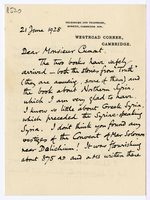 TELEGRAMS AND TELEPHONE,
WESTROAD CORNER,
CAMBRIDGE.
21 June 1928
Dear Monsieur Cumont.
The two books have safely
arrived – both the stories from "
(they are amusing, some of them) and
the book about Northern Syria,
which I am very glad to have.
I know so little about Greek Syria,
which preceded the Syriac-speaking
Syria. I don't think you found any
vestiges of the Convent of Mar Solomon
near Dalichium! It was flourishing
about 875 AD and MSS written there